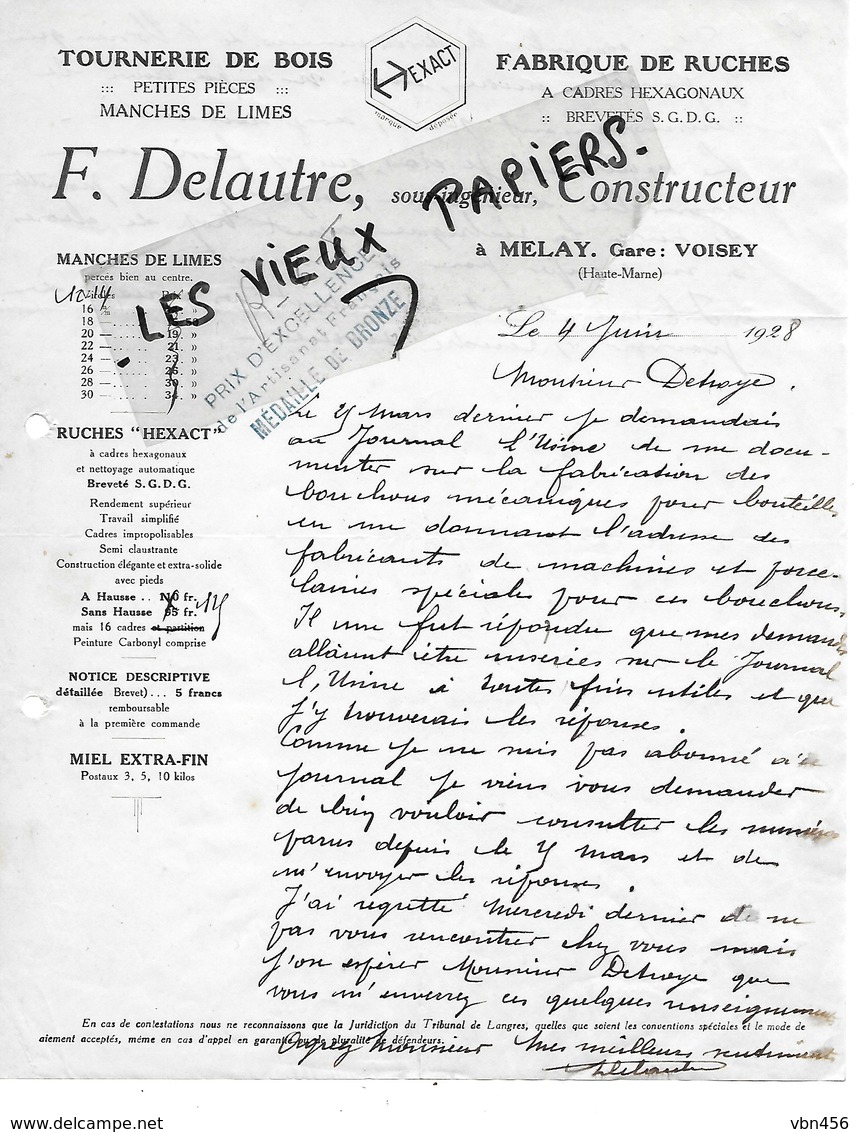 TOURNERIE DE BOIS
::: PETITES PIÈCES :::
MANCHES DE LIMES
HEXACT
marque déposée
FABRIQUE DE RUCHES
A CADRES HEXAGONAUX
:: BREVETÉS S.G.D.G. ::
F. Delautre, sous-ingénieur, Constructeur
à MELAY. Gare : VOISEY
(Haute-Marne)
LES VIEUX PAPIERS.
PRIX D'EXCELLENCE
de l'Artisanat Français
MÉDAILLE DE BRONZE
MANCHES DE LIMES
percés bien au centre.
Prix
16
18
20 — 19 »
22 — 21 »
24 — 23 »
26 — 26 »
28 — 30 »
30 — 34 »
RUCHES "HEXACT"
à cadres hexagonaux
et nettoyage automatique
Breveté S.G.D.G.
Rendement supérieur
Travail simplifié
Cadres impropolisables
Semi claustrante
Construction élégante et extra-solide
avec pieds
A Hausse .. 110 fr.
Sans Hausse 95 fr. 115
mais 16 cadres et partition
Peinture Carbonyl comprise
NOTICE DESCRIPTIVE
détaillée Brevet)... 5 francs
remboursable
à la première commande
MIEL EXTRA-FIN
Postaux 3, 5, 10 kilos
Le 4 Juin 1928
Monsieur Detroye.
Le 7 Mars dernier je demandais
au Journal l'Usine de me docu-
menter sur la fabrication des
bouchons mécaniques pour bouteilles
en me donnant l'adresse des
fabricants de machines et porce-
laines spéciales pour ces bouchons.
Il me fut répondu que mes demandes
allaient être inserées sur le Journal
l'Usine à toutes fins utiles et que
j'y trouverais les réponses.
Comme je ne suis pas abonné à ce
journal je viens vous demander
de bien vouloir consulter les numéros
parus depuis le 7 Mars et de
m'envoyer les réponses.
J'ai regretté Mercredi dernier de ne
pas vous rencontrer chez vous mais
j'ose espérer Monsieur Detroye que
vous m'enverrez ces quelques renseignements
En cas de contestations nous ne reconnaissons que la Juridiction du Tribunal de Langres, quelles que soient les conventions spéciales et le mode de
aiement acceptés, même en cas d'appel en garantie ou de pluralité de défendeurs.
Agréez Monsieur mes meilleurs sentiments
Delautre
vbn456